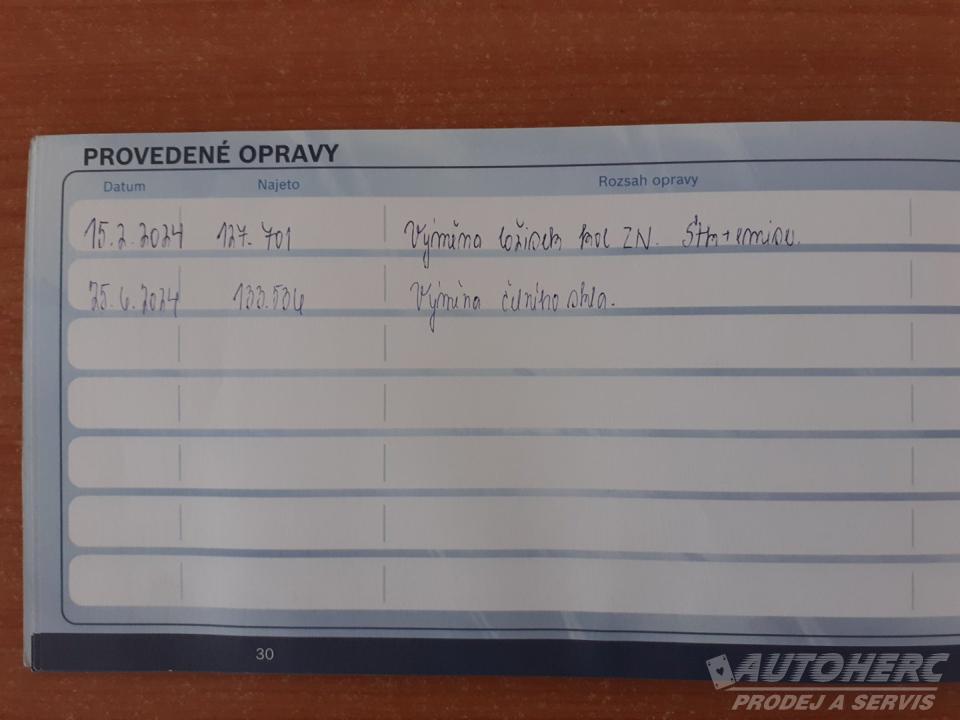 PROVEDENÉ OPRAVY
Datum Najeto Rozsah opravy
15.2.2024 127.701 Výměna ložisek kol ZN. STK+emise.
25.6.2024 133.536 Výměna čelního skla.
30
AUTOHERC
PRODEJ A SERVIS